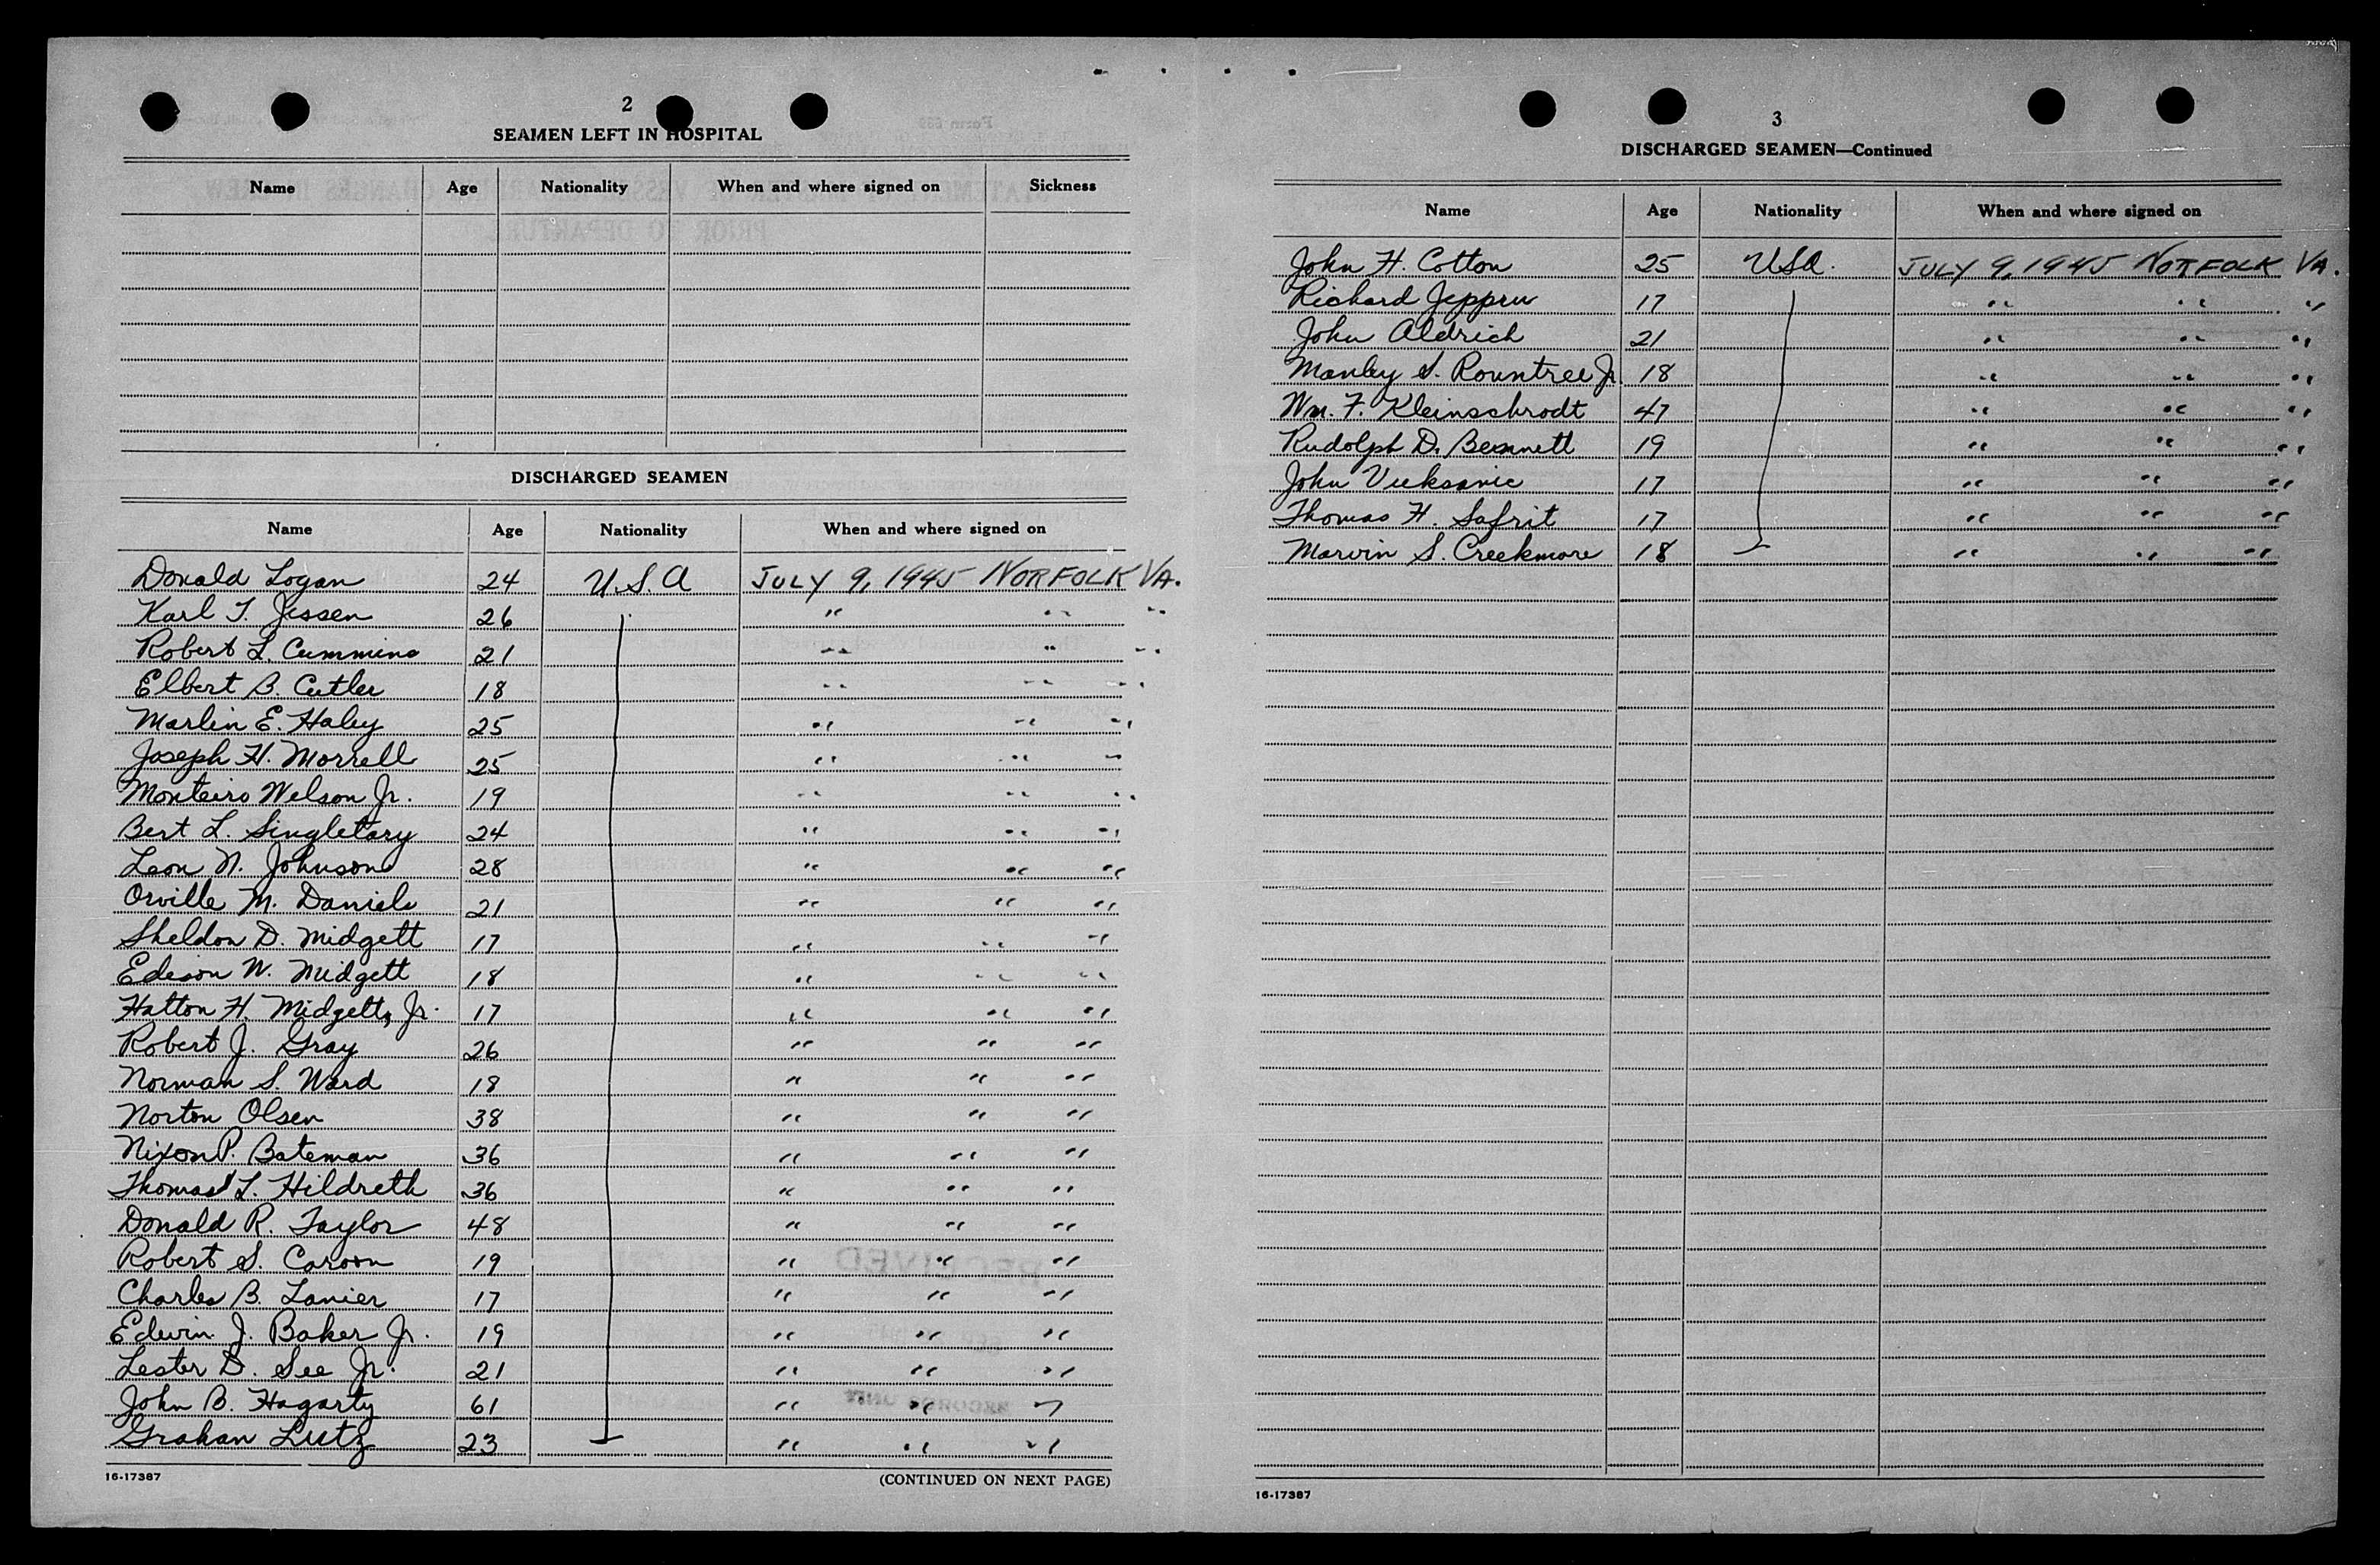 2
SEAMEN LEFT IN HOSPITAL
Name Age Nationality When and where signed on Sickness
DISCHARGED SEAMEN
Name Age Nationality When and where signed on
Donald Logan 24 U.S.A JULY 9, 1945 NORFOLK VA.
Karl T. Jessen 26 " " "
Robert L. Cummins 21 " " "
Elbert B. Cutler 18 " " "
Marlin E. Haley 25 " " "
Joseph H. Morrell 25 " " "
Monteiro Welson Jr. 19 " " "
Bert L. Singletary 24 " " "
Leon N. Johnson 28 " " "
Orville M. Daniels 21 " " "
Sheldon D. Midgett 17 " " "
Edison W. Midgett 18 " " "
Hatton H. Midgett, Jr. 17 " " "
Robert J. Gray 26 " " "
Norman S. Ward 18 " " "
Norton Olsen 38 " " "
Nixon P. Bateman 36 " " "
Thomas L. Hildreth 36 " " "
Donald R. Taylor 48 " " "
Robert S. Caroon 19 " " "
Charles B. Lanier 17 " " "
Edwin J. Baker Jr. 19 " " "
Lester D. See Jr. 21 " " "
John B. Hagarty 61 " " "
Grahan Lutz 23 " " "
16-17387 (CONTINUED ON NEXT PAGE)
3
DISCHARGED SEAMEN—Continued
Name Age Nationality When and where signed on
John H. Cotton 25 USA. JULY 9, 1945 NORFOLK VA.
Richard 17 " " "
John Aldrich 21 " " "
Manley S. Rountree Jr 18 " " "
Wm. F. Kleinschrodt 47 " " "
Rudolph D. Bennett 19 " " "
John Vuksanic 17 " " "
Thomas H. Safrit 17 " " "
Marvin S. Creekmore 18 " " "
16-17387